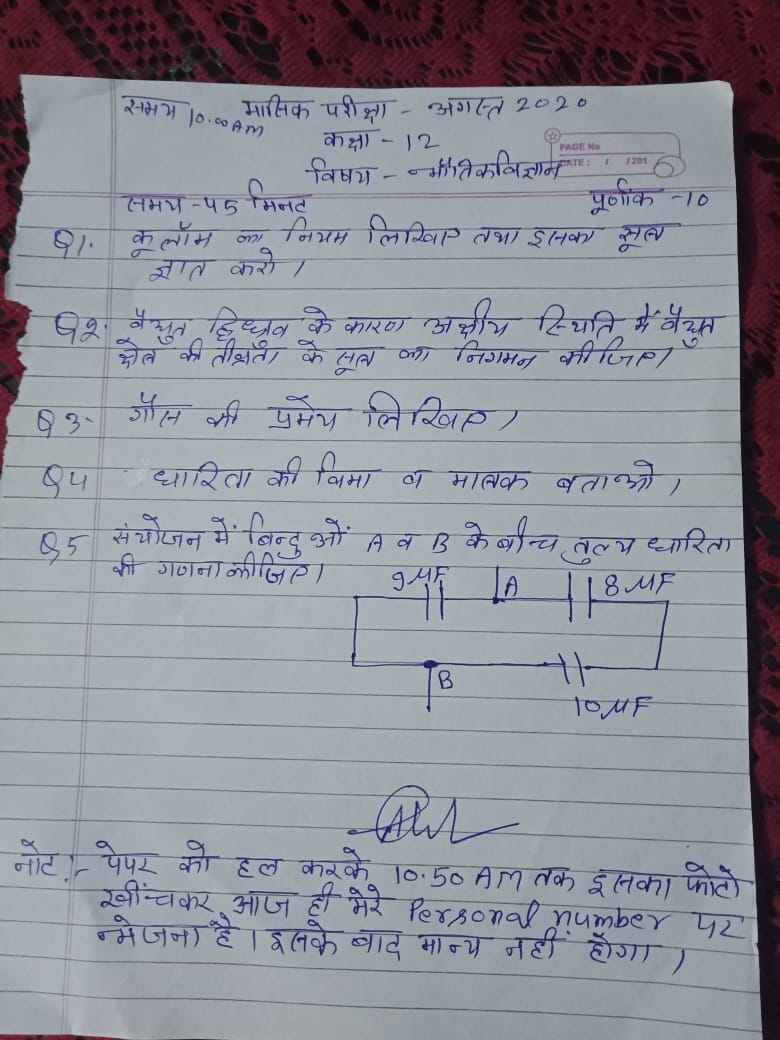 समय 10.00AM मासिक परीक्षा - अगस्त 2020
कक्षा - 12
PAGE No
DATE : / /201
विषय - भौतिकविज्ञान
समय - 45 मिनट पूर्णांक - 10
Q1. कूलॉम का नियम लिखिए तथा इसका सूत्र
ज्ञात करो।
Q2. वैद्युत द्विध्रुव के कारण अक्षीय स्थिति में वैद्युत
क्षेत्र की तीव्रता के सूत्र का निगमन कीजिए।
Q3- गौस की प्रमेय लिखिए।
Q4 धारिता की विमा व मात्रक बताओ।
Q5 संयोजन में बिन्दुओं A व B के बीच तुल्य धारिता
की गणना कीजिए।
9 μF A 8 μF
B
10 μF
नोट:- पेपर को हल करके 10.50 AM तक इसका फोटो
खींचकर आज ही मेरे Personal number पर
भेजना है। इसके बाद मान्य नहीं होगा।